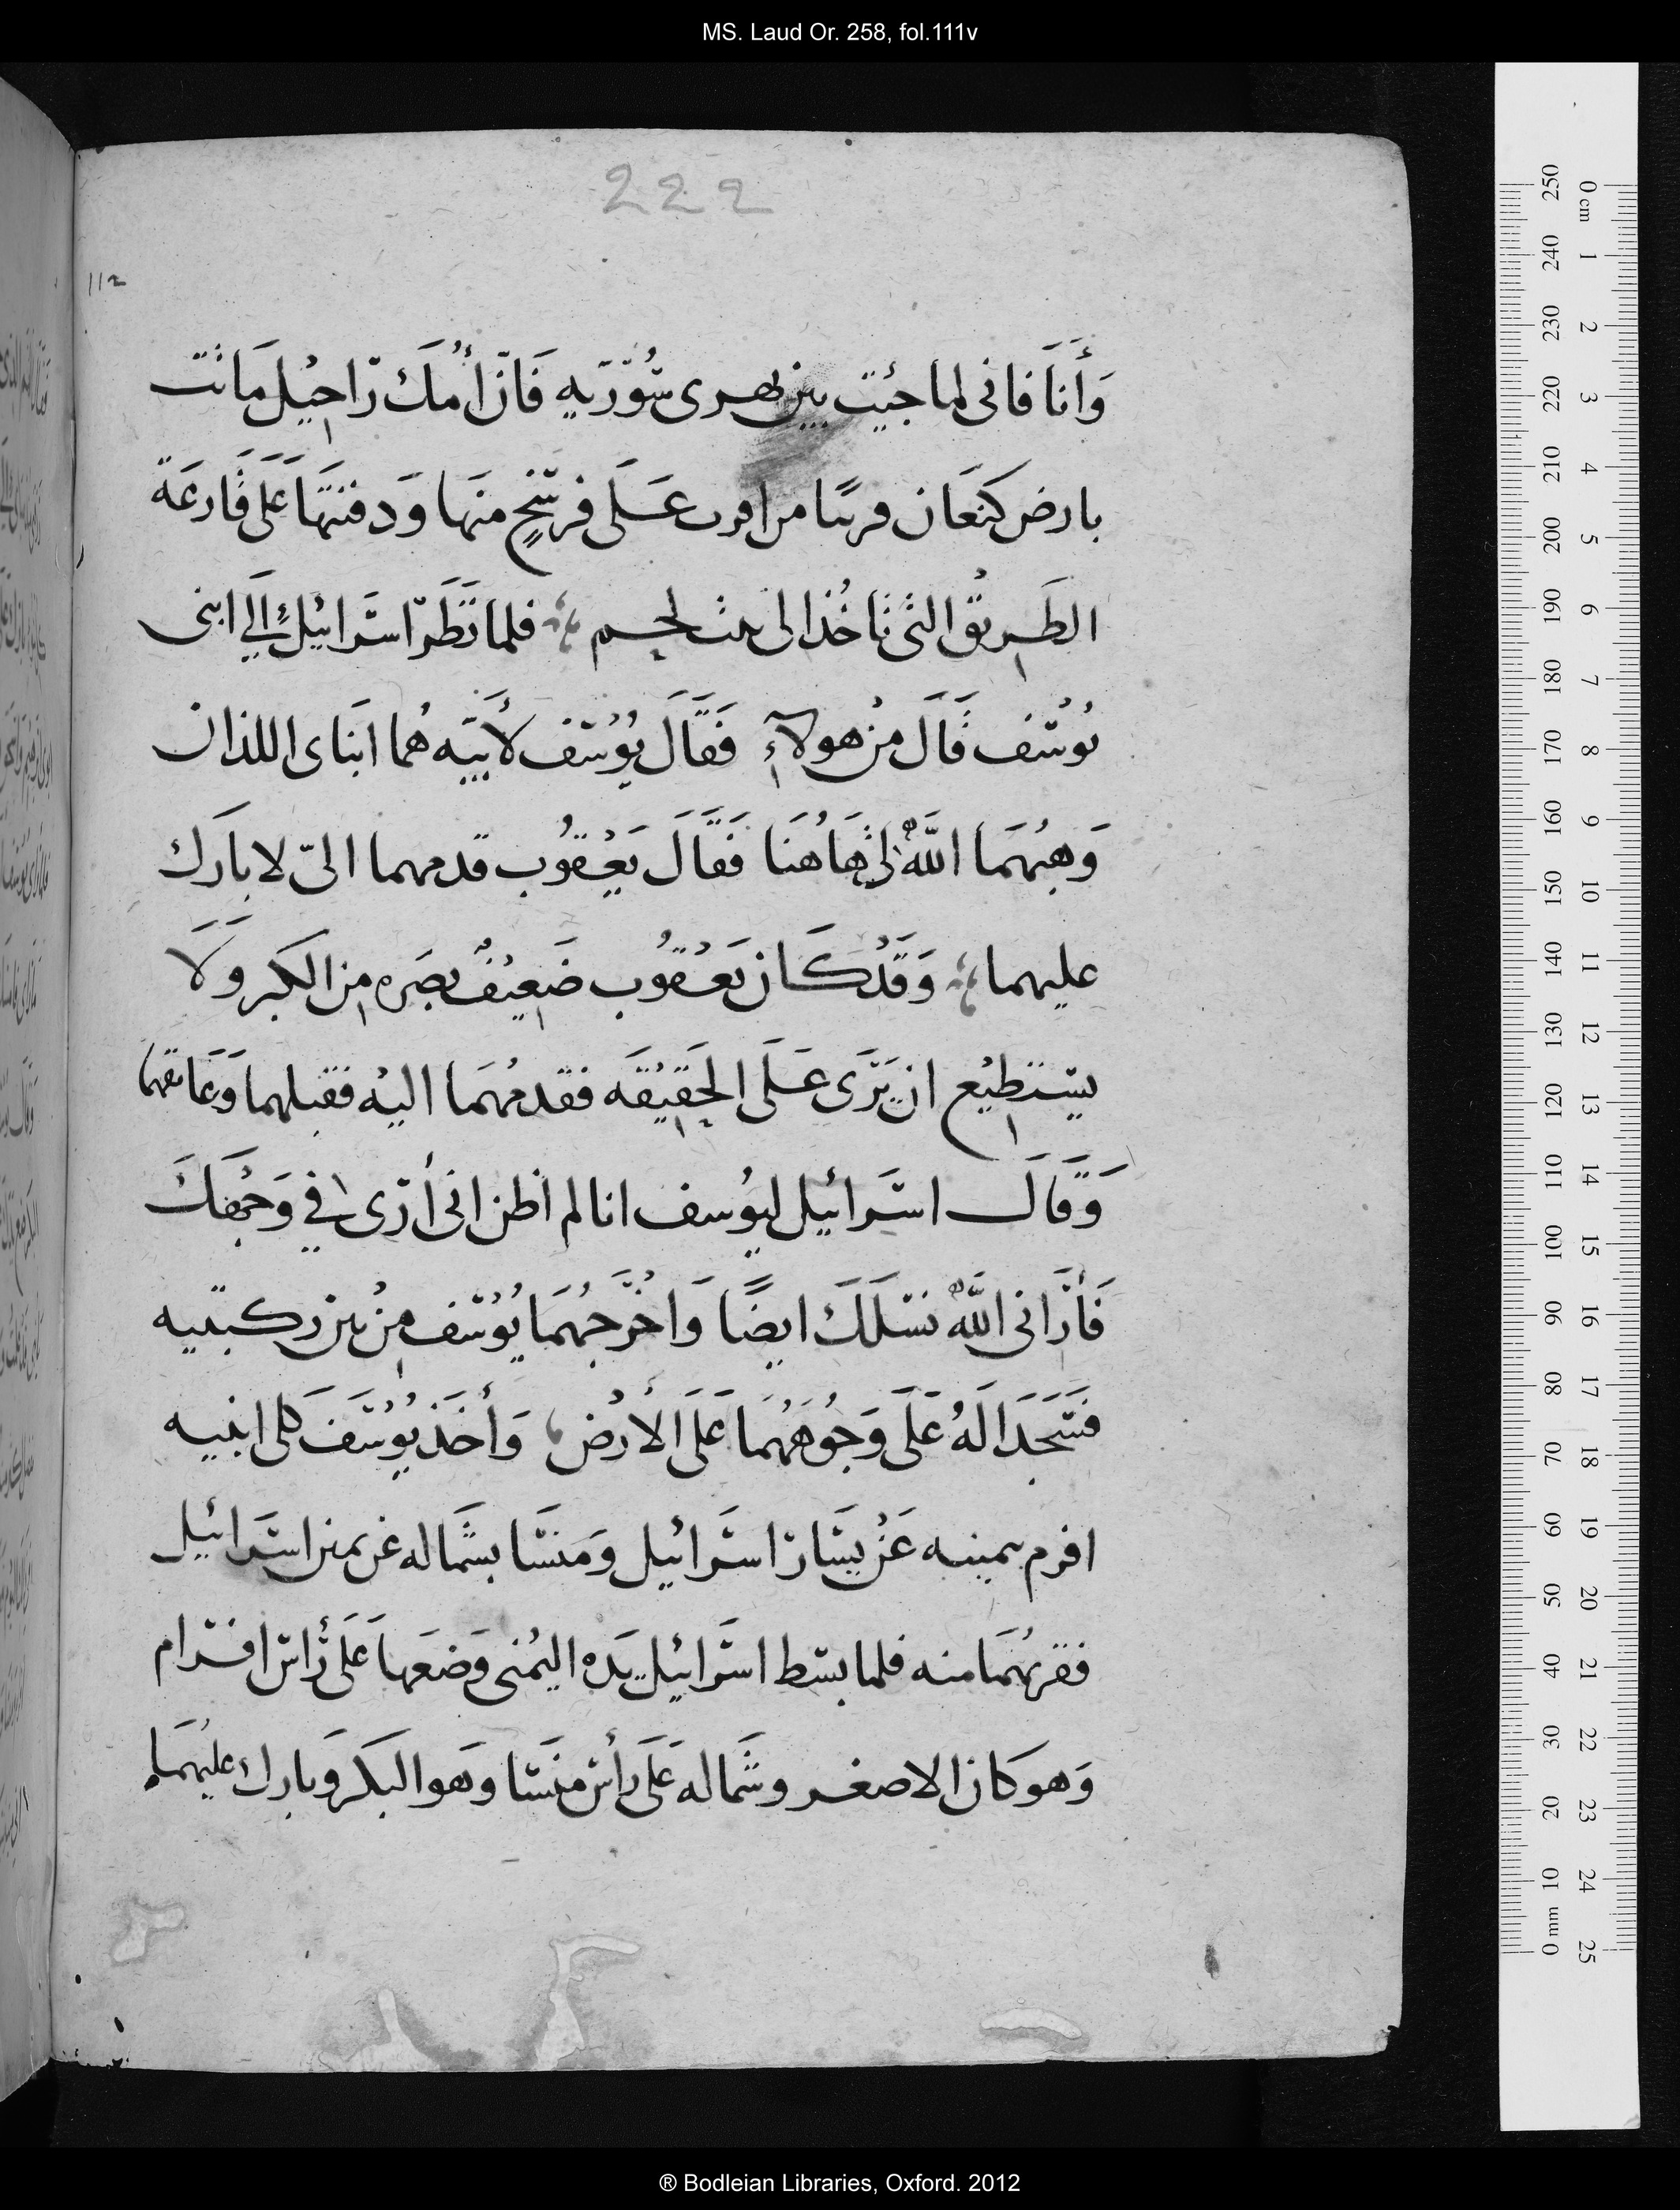 MS. Laud Or. 258, fol.111v
222
112
وَأَنَا فانى لما جئيت بين ظهرى سُوُرّيه فَانّ أُمَك رَاحِيُل مَاتت
بارض كنعَان قريبًا من افرت عَلَى فرسخٍ منهَا وَدفنتهَا عَلَى قَارعَة
الطَريُق التى تاخُذ الى بيت لحم فلما نَظَرَ اسرَائيُل إِلَي ابنى
يُوسُف قَالَ مِنُ هولآءِ فَقَالَ يُوُسُف لأَبيَه هُما ابنَاى اللذان
وَهبهُمَا اللَّهُ لى هَاهُنَا فَقَالَ يَعُقوُب قدمهما الىّ لابارَك
عليهما وَقَدُ كَان يَعُقوُب ضَعيُفٌ بصَره من الكبر وَلَا
يستطيُع ان يَرَى عَلَى الحَقِيُقَه فقدمهُمَا اليُه فقبلهما وَعَانقهما
وَقَالَ اسرَائيل ليوُسف انا لم أظن انى أرَى فِي وَجُهكَ
فَأرَانى اللَّهُ نسَلَكَ ايضًا وَاخُرَجهُمَا يُوُسُف مِنُ بين ركبتيه
فسَجَدَا لَهُ عَلَى وَجُوُهَهُمَا عَلَى الأرُض وَأخَذ يُوُسَف كلى ابنيه
افرم بيمينه عَنُ يسَار اسرَائيل وَمنسَا بشَماله عن يمين اسرَائيل
فقربهُمَا منه فلما بسط اسرَائيل يَده اليُمنى وَضعَها عَلَى رَأس افرام
وَهو كَان الاصغر وشَماله عَلَى رأس منَسَا وهَو البَكر وَبارك عليهُمَا
0 cm 1 2 3 4 5 6 7 8 9 10 11 12 13 14 15 16 17 18 19 20 21 22 23 24 25
250 240 230 220 210 200 190 180 170 160 150 140 130 120 110 100 90 80 70 60 50 40 30 20 10 0 mm
® Bodleian Libraries, Oxford. 2012